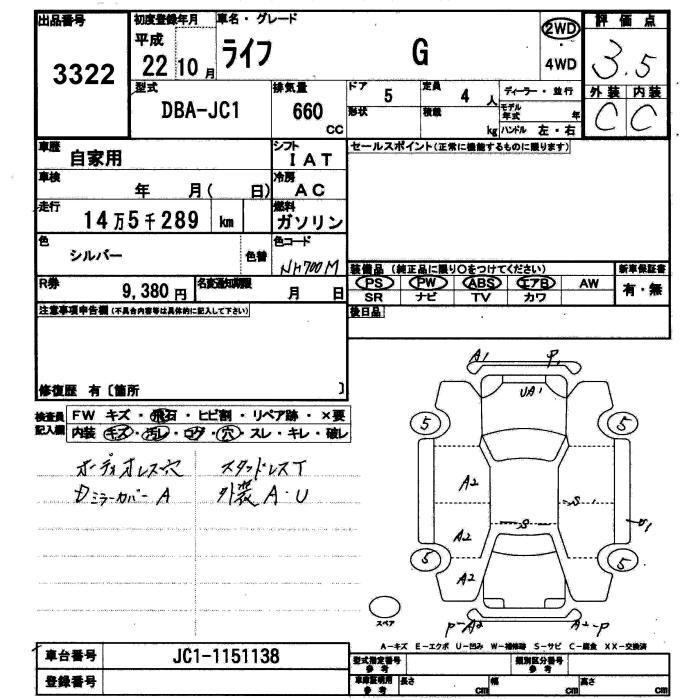 出品番号 初度登録年月 車名・グレード 評価点
3322 平成 22 10月 ライフ G 2WD ・ 4WD 3.5
型式 排気量 ドア 定員 ディーラー・並行 外装 内装
DBA-JC1 660 cc 5 4 人 C C
形状 積載 kg モデル年式 年
ハンドル 左・右
車歴 自家用 シフト IAT セールスポイント(正常に機能するものに限ります)
車検 年 月( 日) 冷房 AC
走行 14万5千289 km 燃料 ガソリン
色 シルバー 色替 色コード NH700M
装備品 (純正品に限り○をつけてください) 新車保証書
R券 9,380 円 名変通知期限 月 日 PS PW ABS エアB AW 有・無
SR ナビ TV カワ
注意事項申告欄 (不具合内容等は具体的に記入して下さい) 後日品
修復歴 有〔箇所 〕
検査員記入欄 FW キズ・飛石・ヒビ割・リペア跡・×要
内装 キズ・汚レ・コゲ・穴・スレ・キレ・破レ
オーディオレス穴 スタッドレスT
Dミラーカバー A 外装 A・U
A1 P1
UA1
5 5
A2 S1
A2 S U1
5 A2 5
スペア P-A2 A2-P
A-キズ E-エクボ U-凹み W-補修跡 S-サビ C-腐食 XX-交換済
車台番号 JC1-1151138 型式指定番号 参考 類別区分番号 参考
登録番号 車庫証明用 参考 長さ cm 幅 cm 高さ cm